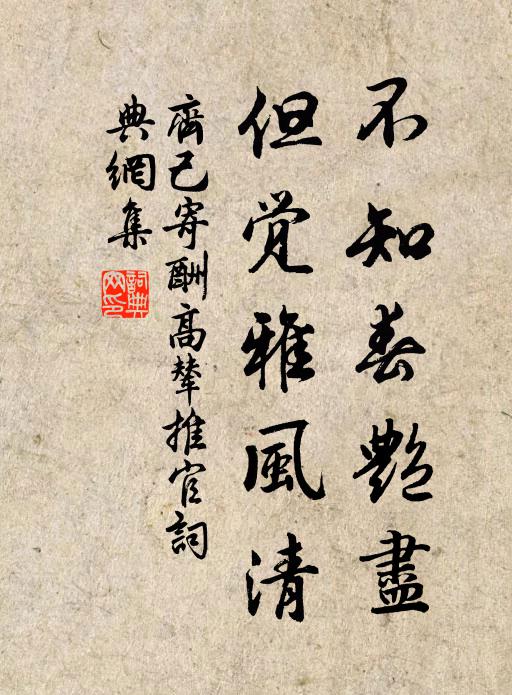 不知春艷盡
但觉雅風清
齊己寄酬高輦推官詞
典網集
詞典
网印